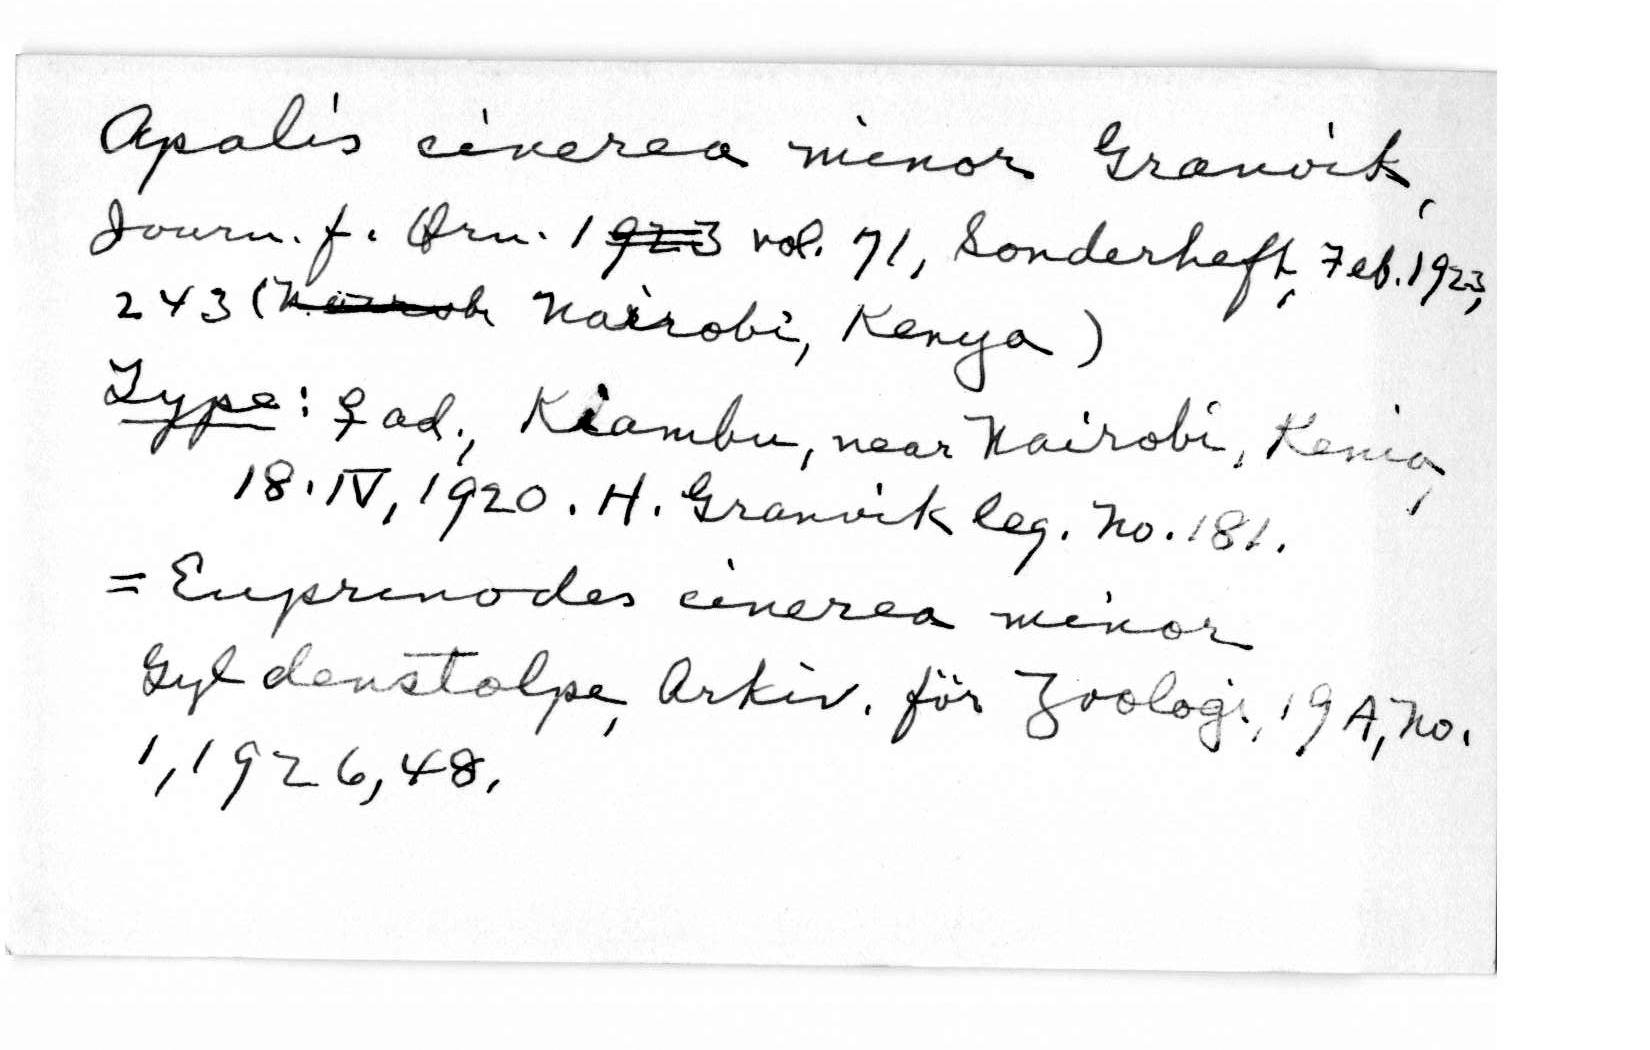 Apalis cinerea minor Granvik,
Journ. f. Orn. 1923 vol. 71, Sonderheft, Feb. 1923,
243 (Nairobi, Kenya)
Type: ♀ ad., Kiambu, near Nairobi, Kenia,
18.IV, 1920. H. Granvik leg. No. 181.
= Euprinodes cinerea minor
Gyldenstolpe, Arkiv. för Zoologi, 19 A, No.
1, 1926, 48.